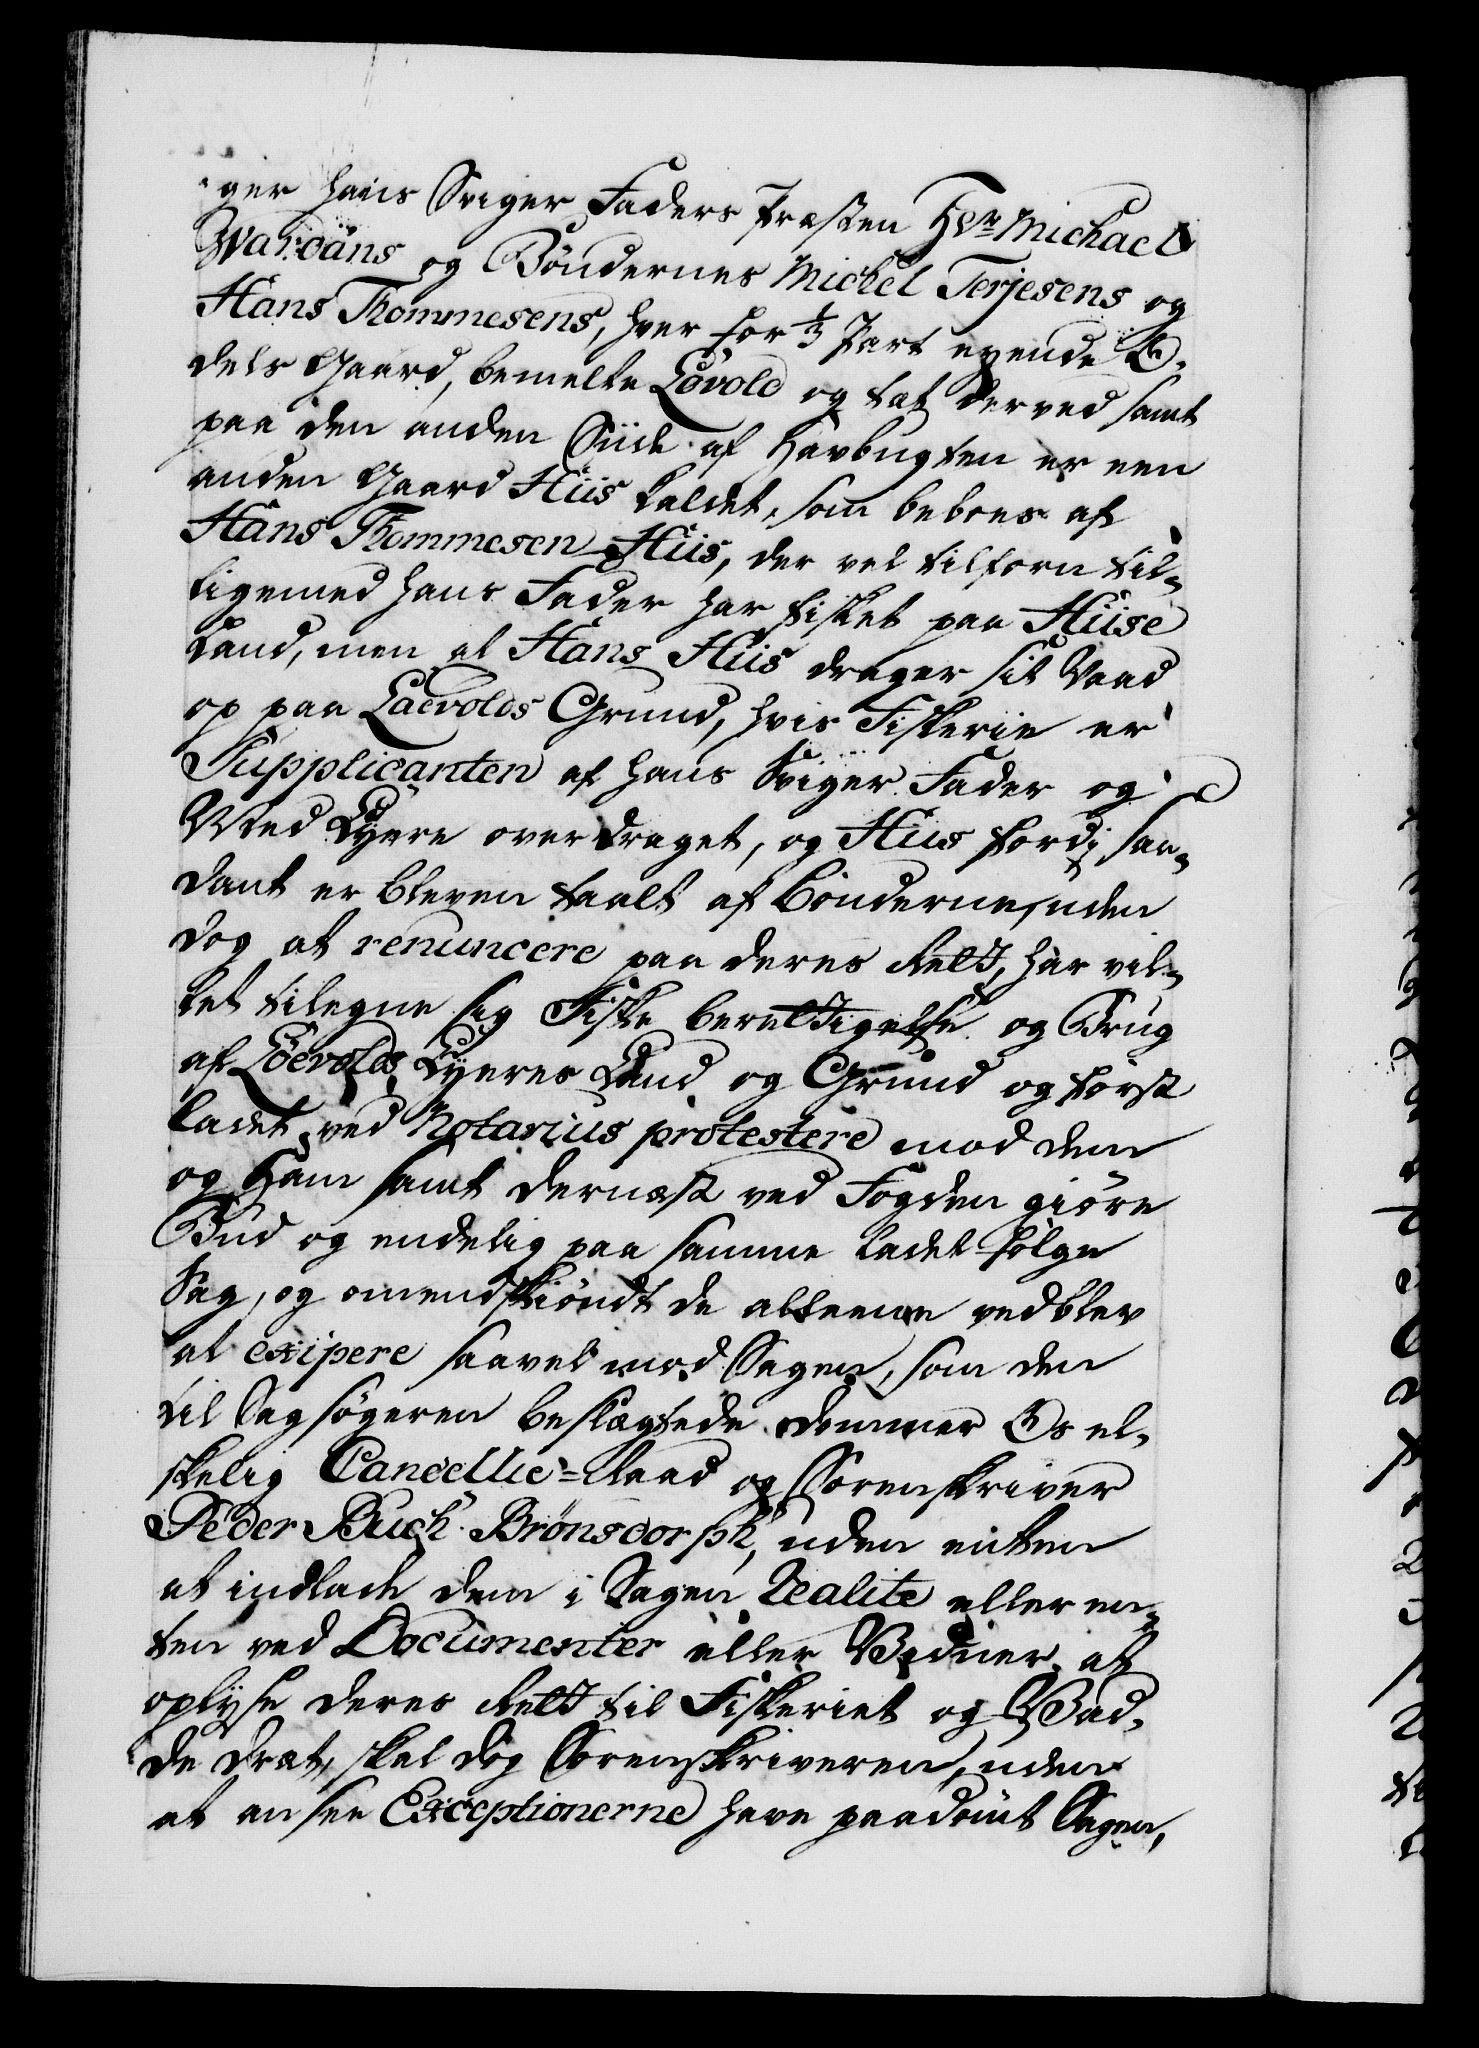 ger hans Sviger Faders Præsten Hr. Michael
Wardans og Bøndernes Michel Terjesens og
Hans Thommesens, hver for 1/3 Part eyende O-
dels Gaard, bemelte Lovold og tæt derved samt
paa den anden Siide af Havbugten er een
anden Gaard Hiis kaldet, som beboes af
Hans Thommesen Hiis, der vel tilforn til-
ligemed hans Fader har fisket paa Hiise
Land, men at Hans Hiis drager sit Vaad
op paa Laevolds Grund, hvis Fiskerie er
Supplicanten af hans Sviger Fader og
Med Eyere overdraget, og Hiis fordi saa-
dant er bleven taalt af Bønderne, uden
dog at renuncere paa deres Rett, har vil-
let tilegne sig Fiske berettigelse og Brug
af Loevolds Eyeres Land og Grund og først
ladet ved Notarius protestere mod dem
og Ham samt dernæst ved Fogden giöre
Bud og endelig paa samme ladet følge
Sag, og omendskiöndt de alleene vedblev
at exipere saavel mod Sagen, som den
til Sagsögeren beslægtede Dommer Os el-
skelig Cancellie-Raad og Sorenskriver
Peder Buch Brönsdorph, uden enten
at indlade dem i Sagen Realite eller en-
ten ved Documenter eller Vidner at
oplyse deres Rett til Fiskeriet og Vad-
de dræt, skal dog Sorenskriveren, uden
at ansee Exceptionerne have paadömt Sagen,